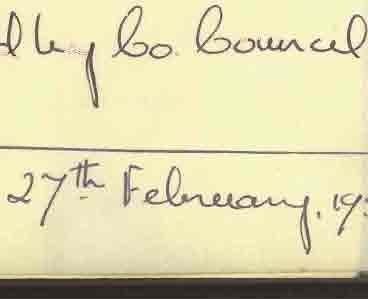 by Co. Council
27th February, 19